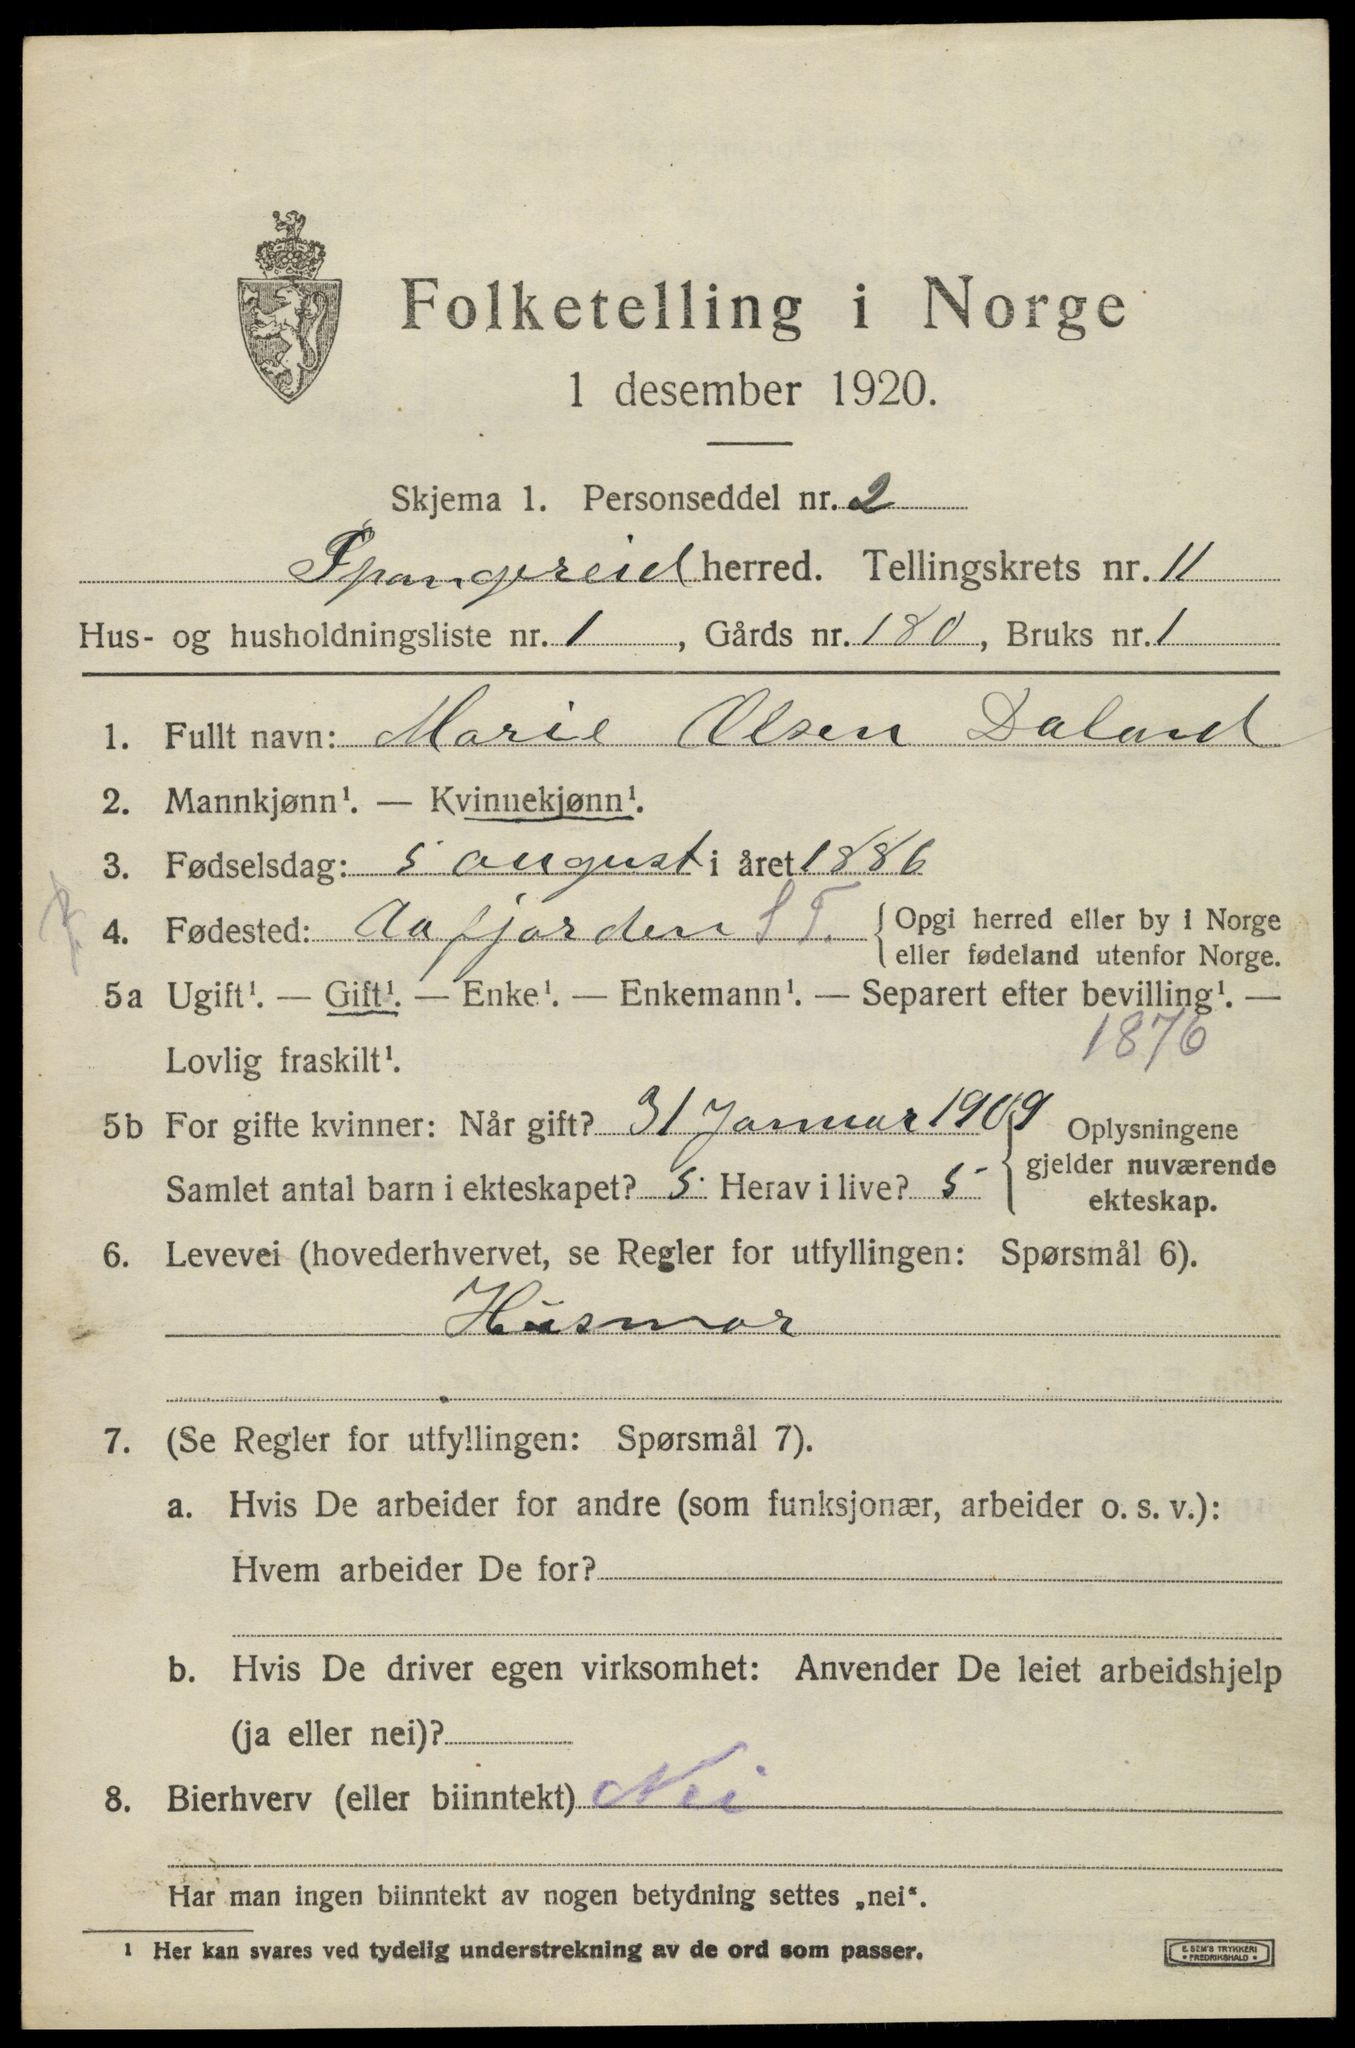 Folketelling i Norge
1 desember 1920.
Skjema 1. Personseddel nr. 2
Spangereid herred. Tellingskrets nr. 11
Hus- og husholdningsliste nr. 1, Gårds nr. 180, Bruks nr. 1
1. Fullt navn: Marie Olsen Daland
2. Mannkjønn¹. — Kvinnekjønn¹.
3. Fødselsdag: 5 august i året 1886
4. Fødested: Aafjorden S T. Opgi herred eller by i Norge
eller fødeland utenfor Norge.
5a Ugift¹. — Gift¹. — Enke¹. — Enkemann¹. — Separert efter bevilling¹. —
Lovlig fraskilt¹. 1876
5b For gifte kvinner: Når gift? 31 Januar 1909 Oplysningene
gjelder nuværende
Samlet antal barn i ekteskapet? 5 Herav i live? 5 ekteskap.
6. Levevei (hovederhvervet, se Regler for utfyllingen: Spørsmål 6).
Husmor
7. (Se Regler for utfyllingen: Spørsmål 7).
a. Hvis De arbeider for andre (som funksjonær, arbeider o. s. v.):
Hvem arbeider De for?
b. Hvis De driver egen virksomhet: Anvender De leiet arbeidshjelp
(ja eller nei)?
8. Bierhverv (eller biinntekt) Nei
Har man ingen biinntekt av nogen betydning settes „nei“.
¹ Her kan svares ved tydelig understrekning av de ord som passer.
E. SEM'S TRYKKERI
• FREDRIKSHALD •